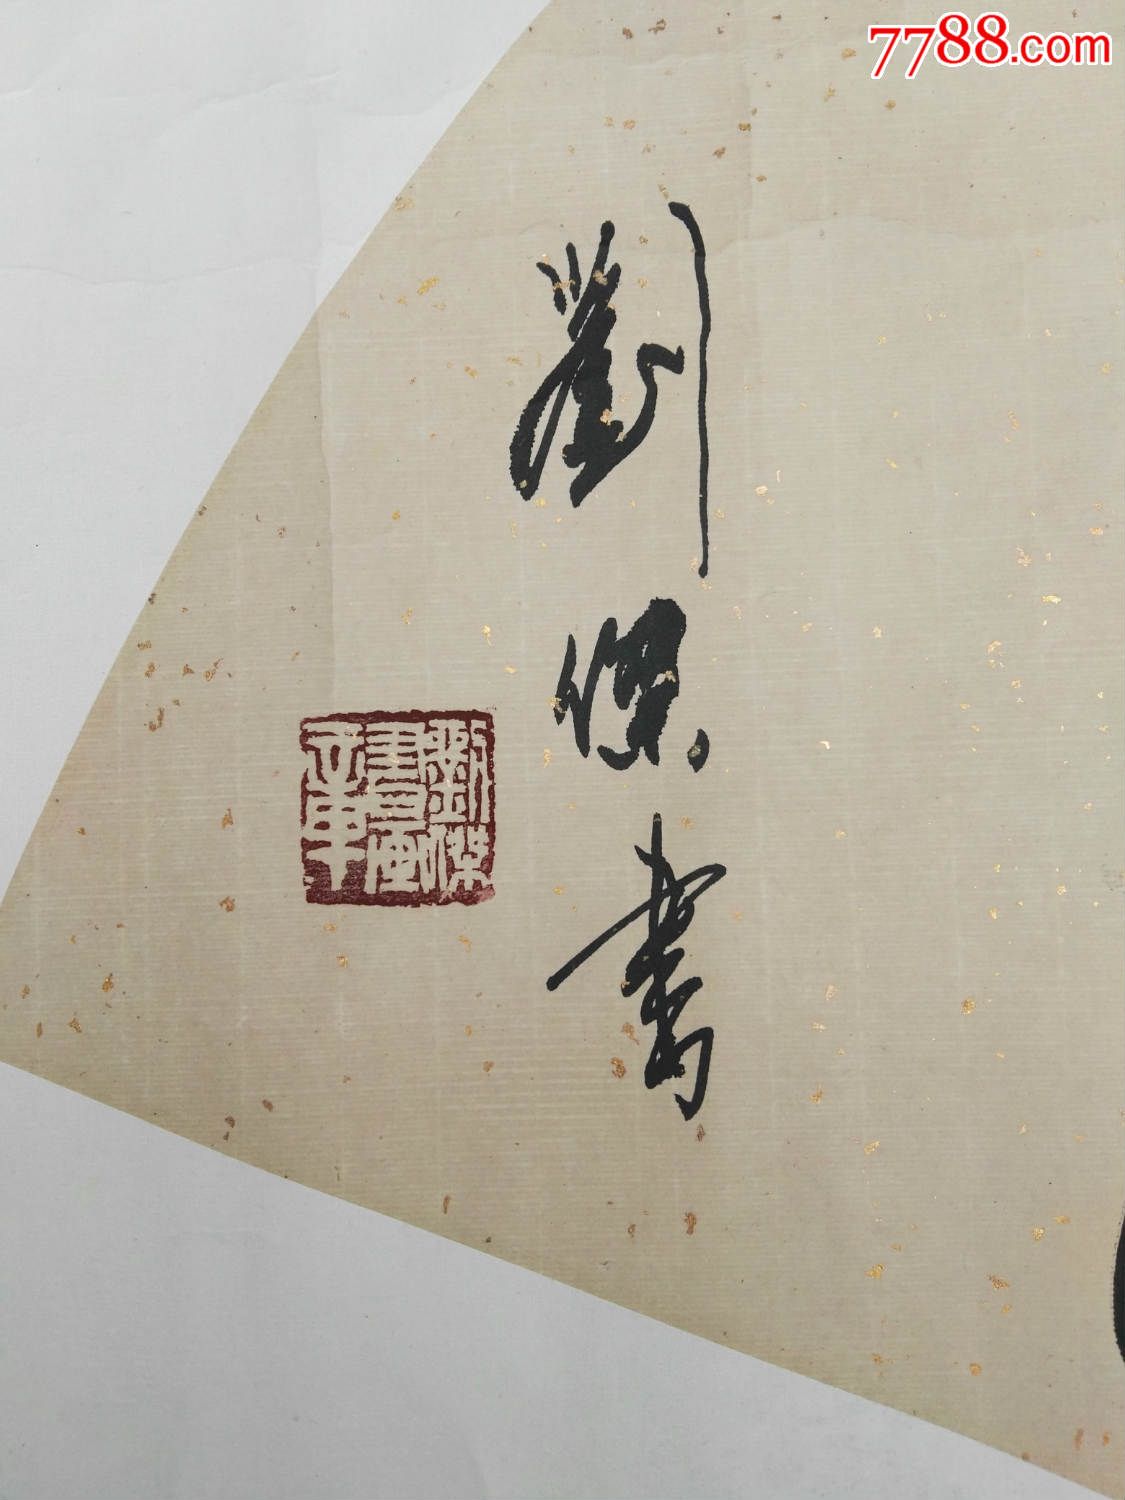 7788.com
劉傑書
劉傑
書畫
之章